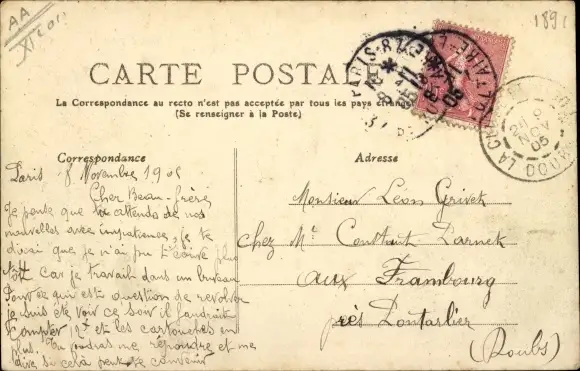 AA
189
CARTE POSTALE
La Correspondance au recto n'est pas acceptée par tous les pays étrangers
(Se renseigner à la Poste)
Correspondance
Paris 8 Novembre 1905
Cher Beau-frère
Je pense que tu attends de nos
nouvelles avec impatience, je te
dirai que je n'ai pu t'écrire plus
tôt car je travail dans un bureau
Pour ce qui est question de revolver
je suis été voir ce soir il faudrait
Compter 12f et les cartouches en
plus. Tu voudras me répondre et me
dire si cela peut te convenir
Adresse
Monsieur Léon Grivet
chez Mr Constant Parnet
aux Frambourg
près Pontarlier
(Doubs)
PARIS
NOV
05